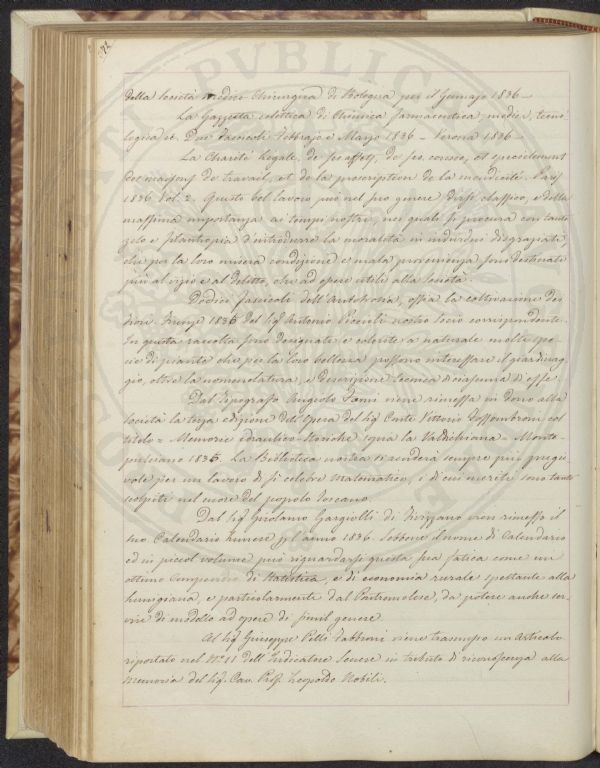 72
della Società medico Chirurgica di Bologna per il Gennajo 1836 –
La Gazzetta eclettica di Chimica farmaceutica, medica, tecno
logica ec. Due Fascicoli Febbrajo e Marzo 1836 – Verona 1836
La Charité Légale, de ses effets, de ses causes, et specialement
des maisons de travail, et de la proscription de la mendicité. Paris
1836 Vol. 2. Questo bel lavoro può nel suo genere dirsi classico, e della
massima importanza ai tempi nostri, nei quali si procura con tanto
zelo e filantropia d'introdurre la moralità in individui disgraziati,
che per la loro misera condizione e mala provenienza sono destinati
più al vizio e al delitto, che ad opere utili alla società.
Dodici fascicoli dell'Antotrofia, ossia la coltivazione dei
Fiori. Firenze 1836 del Sig. Antonio Piccioli nostro Socio corrispondente.
In questa raccolta sono designate, e colorite a naturale molte spe
cie di piante che per la loro bellezza possono interessare il giardinag
gio, oltre la nomenclatura, e descrizione tecnica di ciascuna di esse
Dal Tipografo Angiolo Fumi viene rimessa in dono alla
società la terza edizione dell'Opera del Sig. Conte Vittorio Fossombroni col
titolo = Memorie idraulico-Storiche sopra la Valdichiana – Monte-
pulciano 1835. La Biblioteca nostra si renderà sempre più prege
vole per un lavoro di sì celebre Matematico, i di cui meriti sono tanto
scolpiti nel cuore del popolo Toscano.
Dal Sig. Girolamo Gargiolli di Fivizzano vien rimesso il
suo Calendario Lunese pl anno 1836. Sebbene il nome di Calendario
ed in piccol volume può riguardarsi questa sua fatica come un
ottimo Compendio di Statistica, e di economia rurale spettante alla
Lunigiana, e particolarmente dal Pontremolese, da potere anche ser-
vire di modello ad opere di simil genere.
Al Sig. Giuseppe Pelli Fabbroni viene trasmesso un Articolo
riportato nel N.º 11 dell'Indicatore Senese in tributo di riconoscenza alla
Memoria del Sig. Cav. Prof. Leopoldo Nobili.